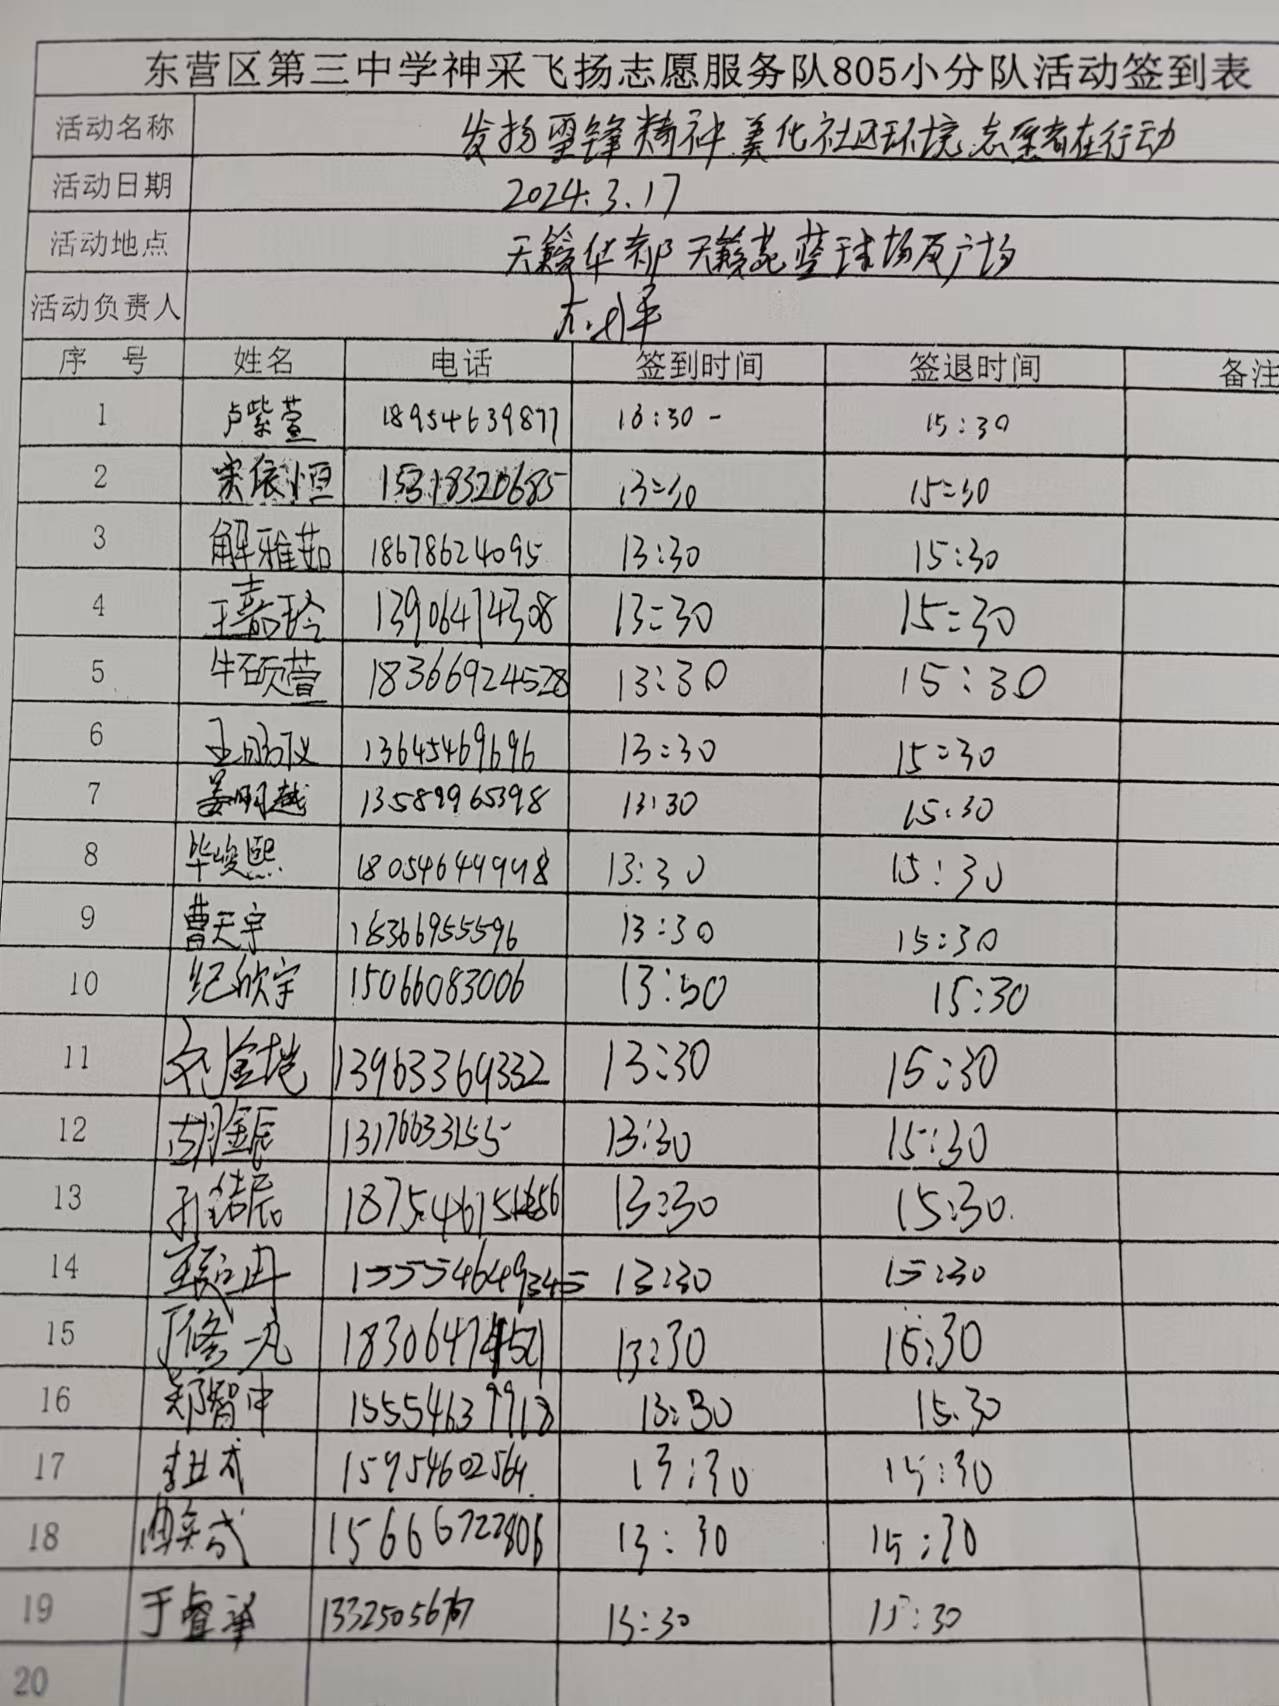 东营区第三中学神采飞扬志愿服务队805小分队活动签到表
活动名称 发扬雷锋精神 美化社区环境 志愿者在行动
活动日期 2024.3.17
活动地点 天籁华都 天籁苑蓝球场及广场
活动负责人
序 号 姓名 电话 签到时间 签退时间 备注
1 卢紫萱 18954639877 13:30 - 15:30
2 宋依恒 15318320685 13:30 15:30
3 解雅茹 18678624095 13:30 15:30
4 王嘉玲 13906474308 13:30 15:30
5 牛硕萱 18366924528 13:30 15:30
6 13645469696 13:30 15:30
7 姜明越 13589965398 13:30 15:30
8 毕峻熙 18054644998 13:30 15:30
9 曹天宇 18366955596 13:30 15:30
10 纪欣宇 15066083006 13:30 15:30
11 刘金桄 13963369332 13:30 15:30
12 胡金辰 13176633155 13:30 15:30
13 13:30 15:30
14 13:30 15:30
15 丁修一凡 13:30 15:30
16 郑智中 15554639918 13:30 15.30
17 15954602564 13:30 15:30
18 15666722806 13:30 15:30
19 于睿 13:30 15:30
20